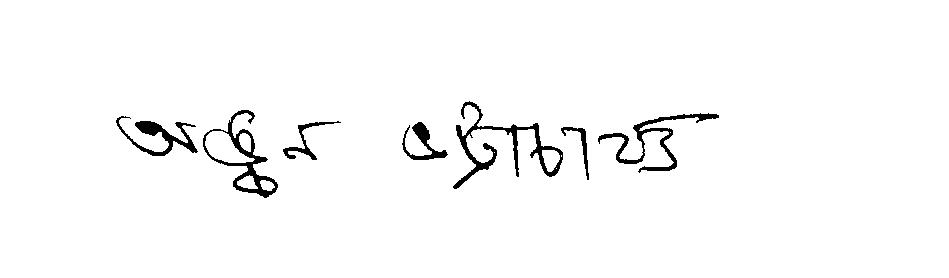 অঙ্কুন ভট্টাচার্য